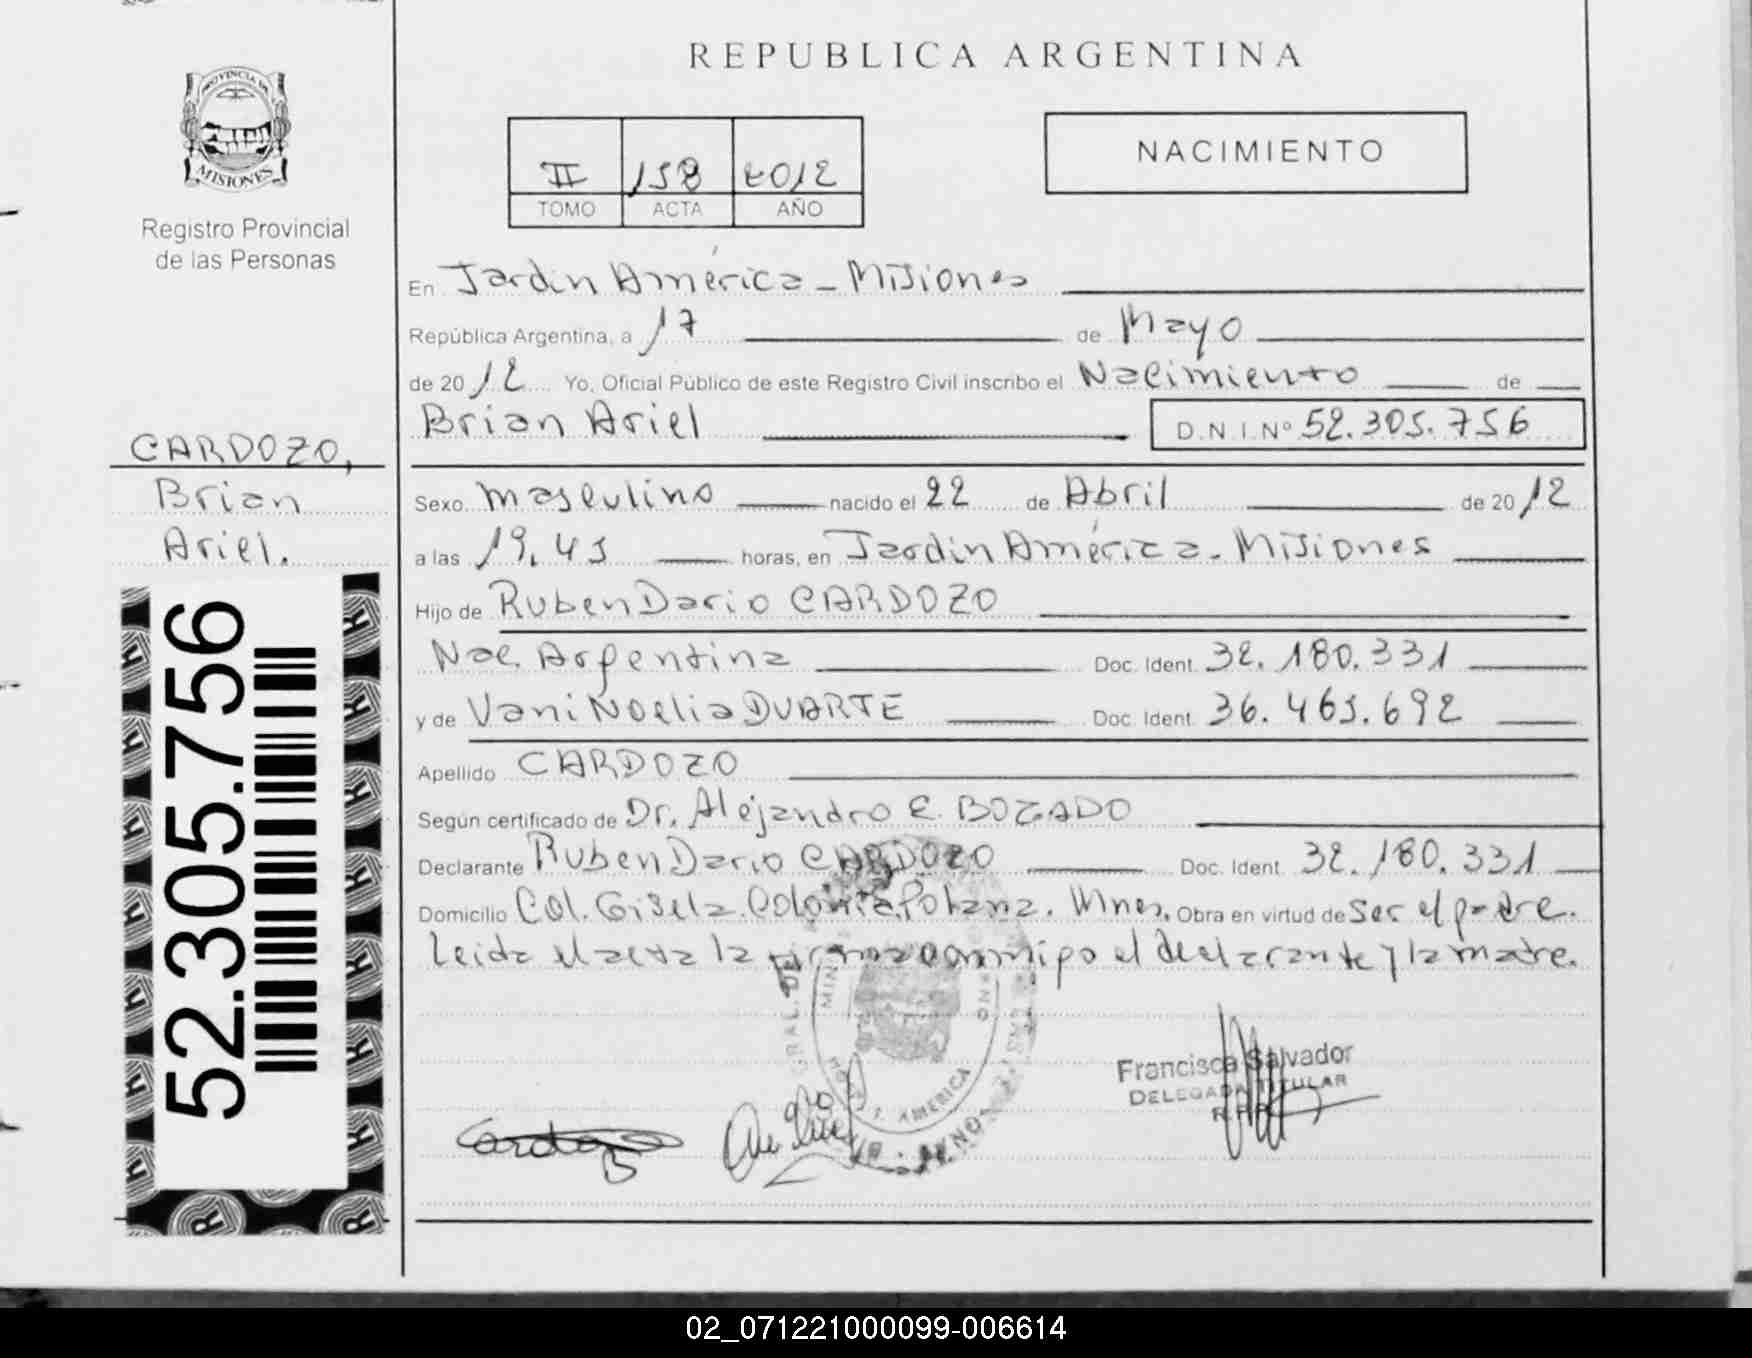 REPUBLICA ARGENTINA
PROVINCIA DE
MISIONES
Registro Provincial
de las Personas
II 158 2012
TOMO ACTA AÑO
NACIMIENTO
En Jardin América - Misiones
República Argentina, a 17 de Mayo
de 2012 Yo, Oficial Público de este Registro Civil inscribo el Nacimiento de
Brian Ariel D.N.I. Nº 52.305.756
CARDOZO,
Brian
Ariel.
Sexo masculino nacido el 22 de Abril de 2012
a las 19,45 horas, en Jardin América - Misiones
Hijo de Ruben Dario CARDOZO
Nac. Argentina Doc. Ident. 32.180.331
y de Vani Noelia DUARTE Doc. Ident. 36.465.692
Apellido CARDOZO
Según certificado de Dr. Alejandro E. BOZADO
Declarante Ruben Dario CARDOZO Doc. Ident. 32.180.331
Domicilio Col. Gisela. Colonia Polana. Mnes. Obra en virtud de ser el padre.
Leida el acta la firman conmigo el declarante y la madre.
52.305.756
Francisca Salvador
DELEGADA TITULAR
R.P.P.
Cardozo
AMERICA
02_071221000099-006614